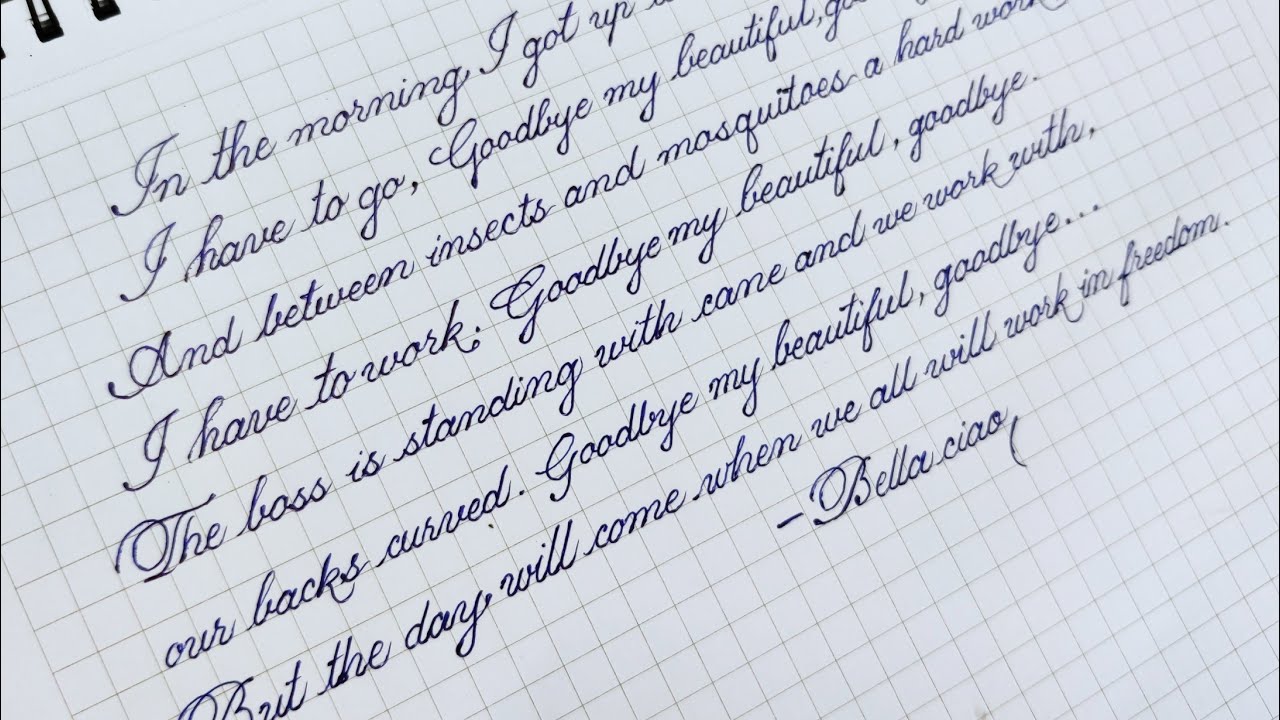 In the morning I got up
I have to go, Goodbye my beautiful,
And between insects and mosquitoes a hard work
I have to work; Goodbye my beautiful, goodbye.
The boss is standing with cane and we work with,
our backs curved. Goodbye my beautiful, goodbye...
But the day will come when we all will work in freedom.
- Bella ciao